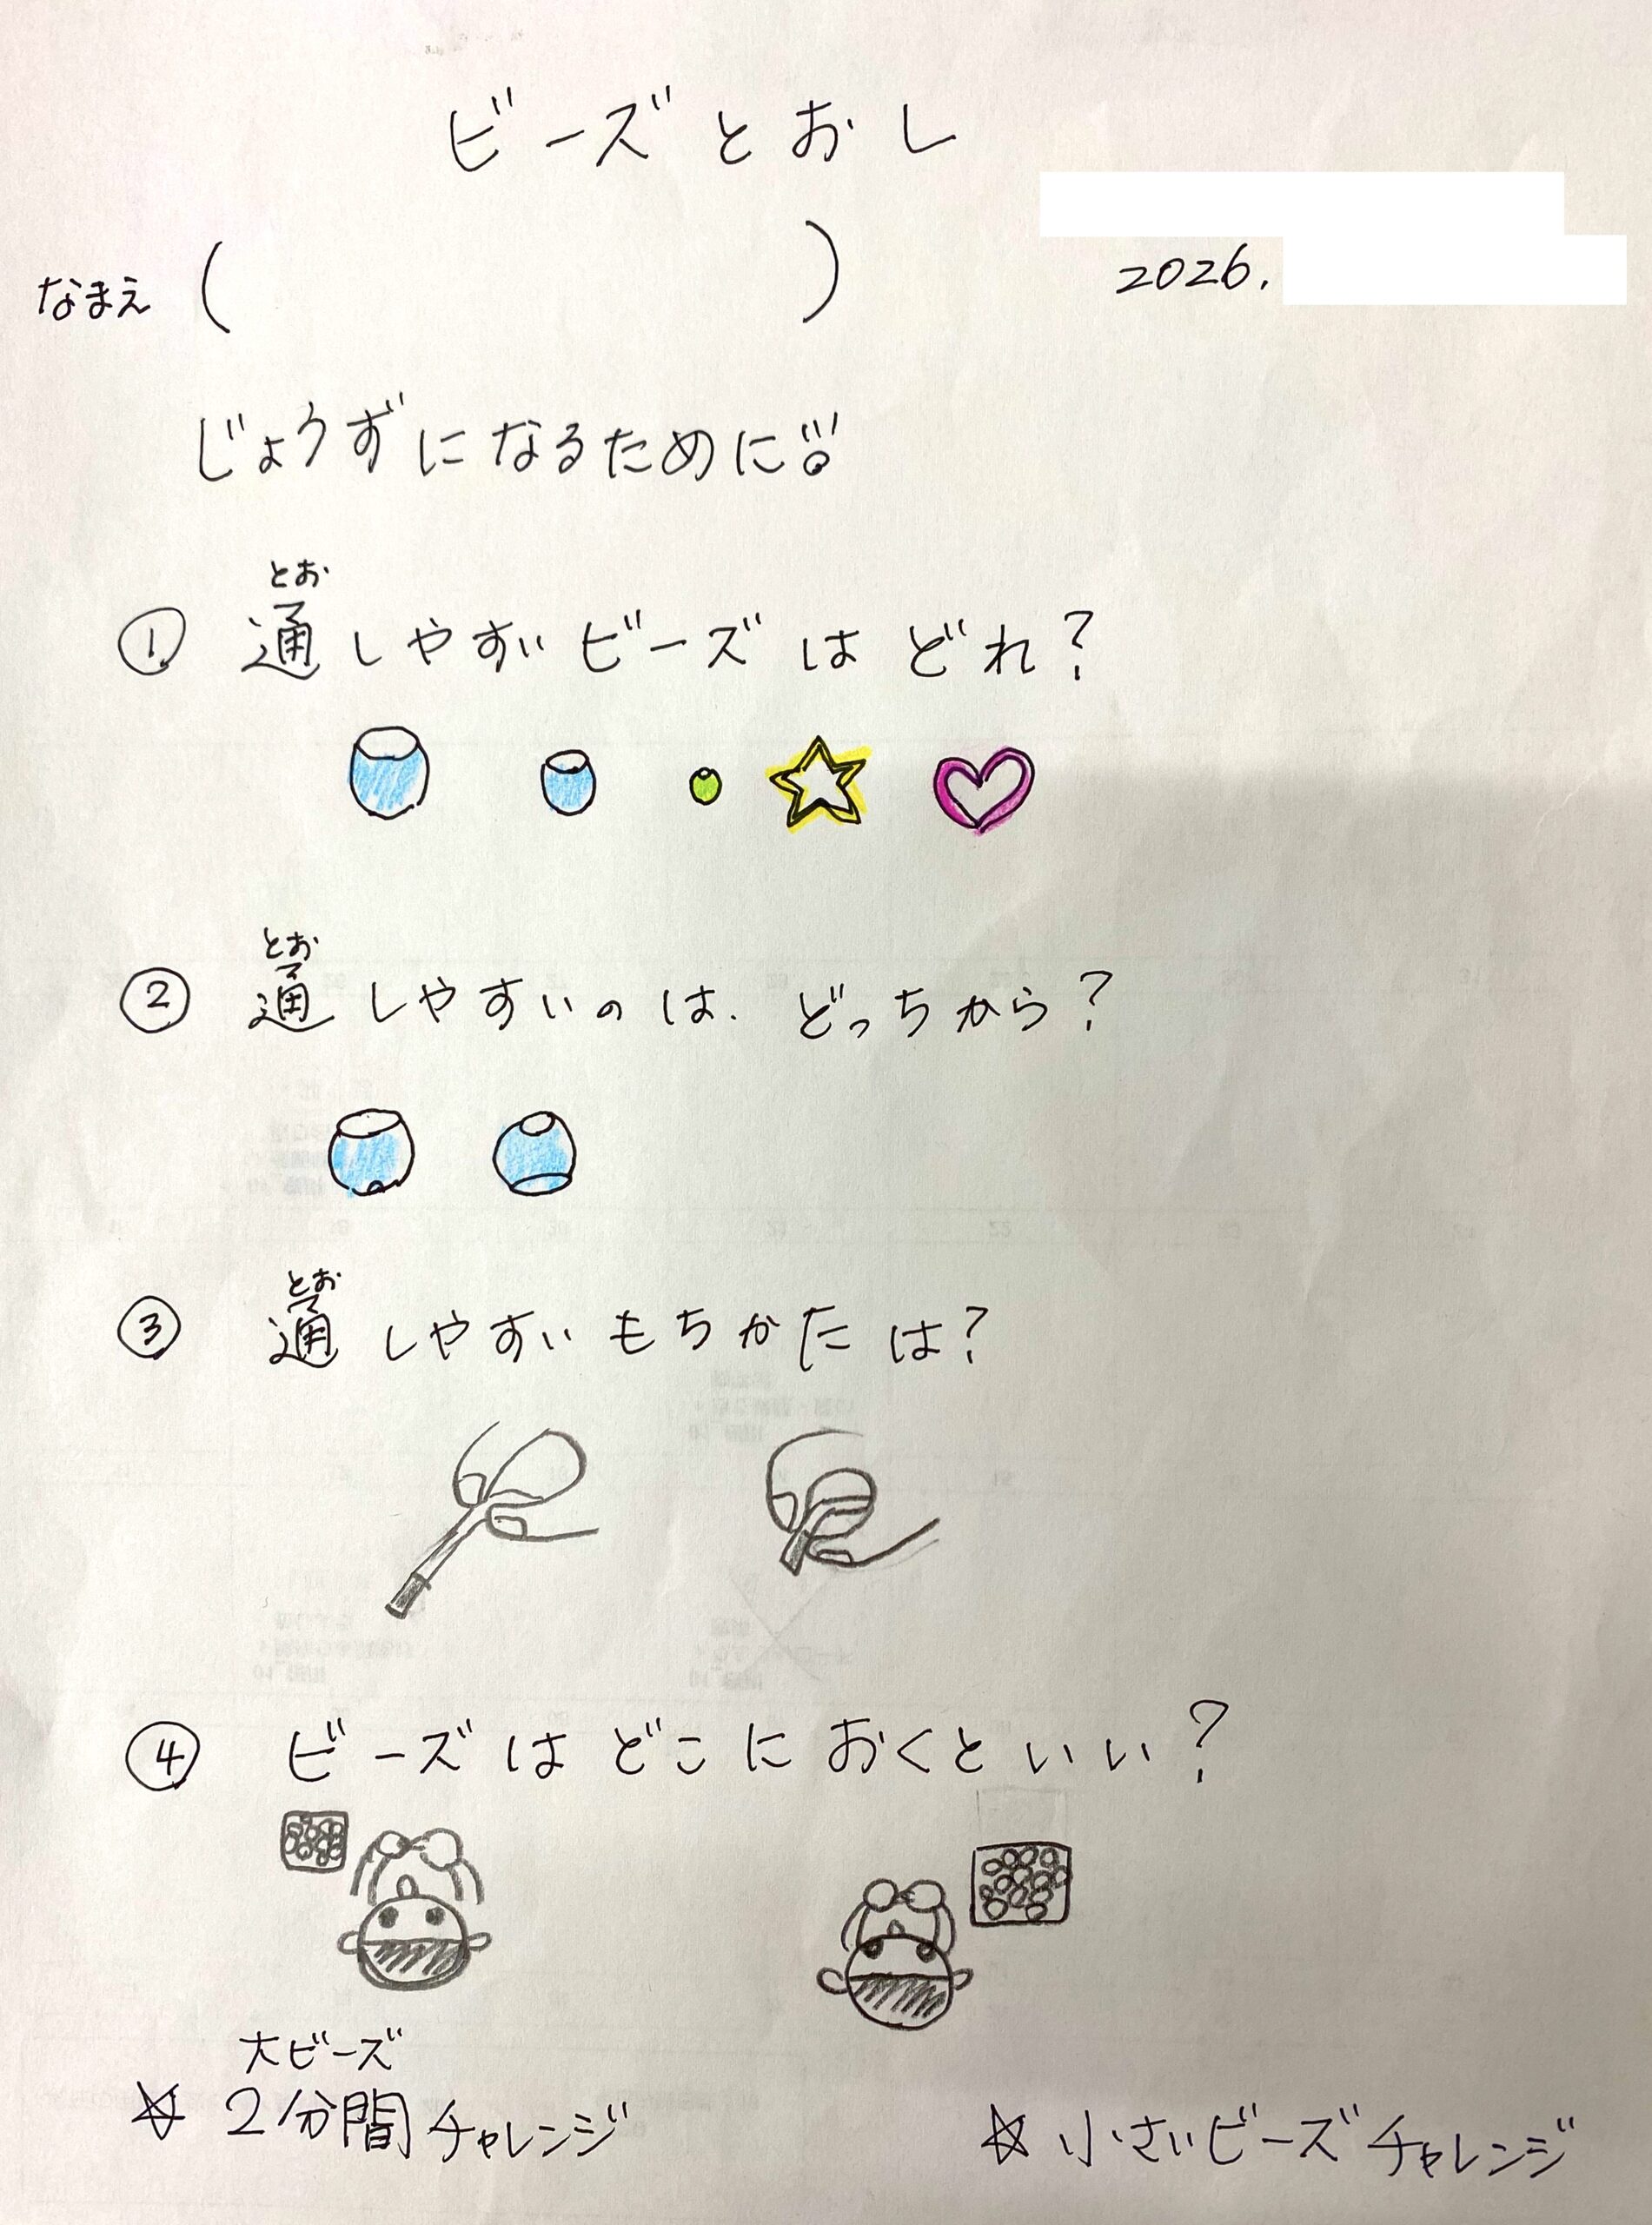 ビーズとおし
なまえ（　　　　　　　）　2026.
じょうずになるために!!!
とお
① 通しやすいビーズはどれ？
とお
② 通しやすいのは、どっちから？
とお
③ 通しやすいもちかたは？
④ ビーズはどこにおくといい？
大ビーズ
☆ 2分間チャレンジ
☆ 小さいビーズチャレンジ